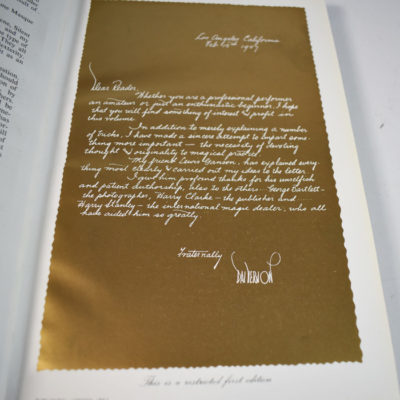 Los Angeles California
Dear Reader,
Whether you are a professional performer
an amateur or just an enthusiastic beginner, I hope
that you will find something of interest & profit in
this volume.
In addition to merely explaining a number
of tricks, I have made a sincere attempt to impart some-
thing more important — the necessity of devoting
thought & originality to magical practice.
My friend Lewis Ganson, has explained every-
thing most clearly & carried out my ideas to the letter.
I give him profound thanks for his unselfish
and patient authorship, also to the others — George Bartlett —
the photographer, Harry Clarke — the publisher and
Harry Stanley — the international magic dealer, who all
have aided him so greatly.
Fraternally
Dai Vernon
This is a restricted first edition